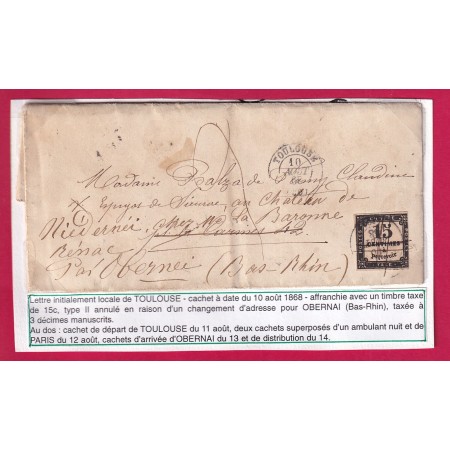 TOULOUSE
10
AOUT
68
Madame Balza de Claudine
au Château de
Niedernai La Baronne
par Obernei (Bas-Rhin)
15
CENTIMES
à percevoir
Lettre initialement locale de TOULOUSE - cachet à date du 10 août 1868 - affranchie avec un timbre taxe
de 15c, type II annulé en raison d'un changement d'adresse pour OBERNAI (Bas-Rhin), taxée à
3 décimes manuscrits.
Au dos : cachet de départ de TOULOUSE du 11 août, deux cachets superposés d'un ambulant nuit et de
PARIS du 12 août, cachets d'arrivée d'OBERNAI du 13 et de distribution du 14.